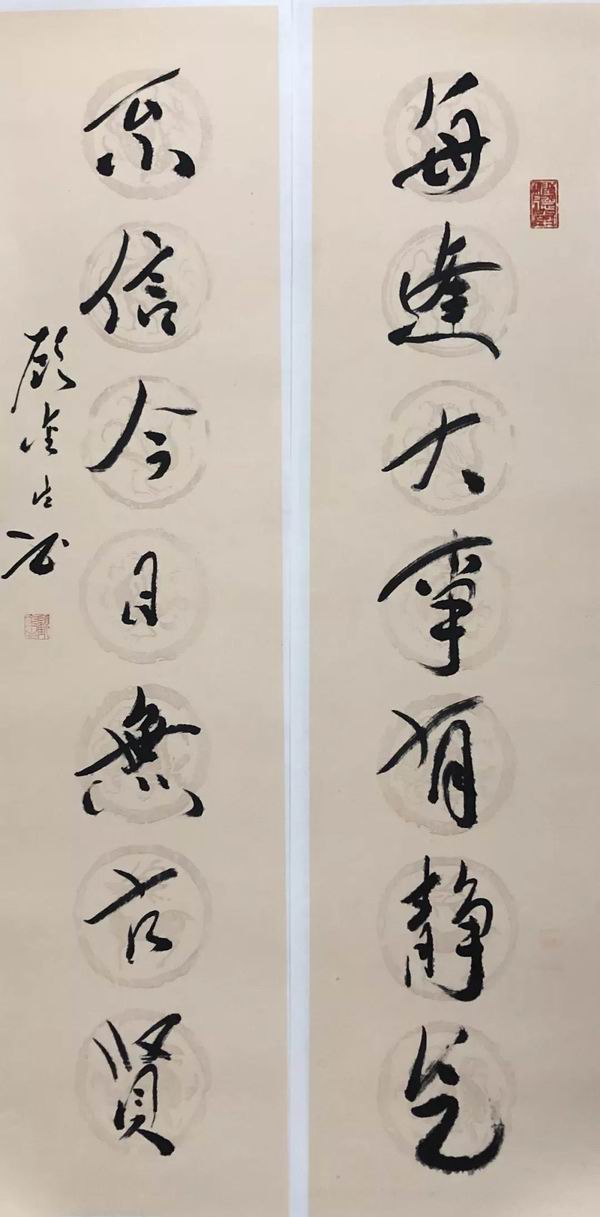 每逢大事有静气
不信今日無古賢